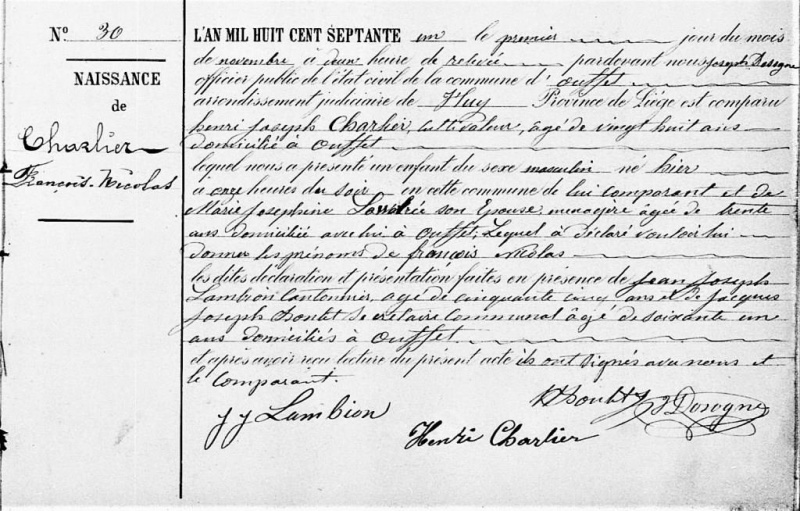 N° 30
NAISSANCE
de
Charlier
François-Nicolas
L'AN MIL HUIT CENT SEPTANTE un le premier jour du mois
de novembre à deux heure de relevée pardevant nous Joseph Dosogne
officier public de l'état civil de la commune d'Ouffet
arrondissement judiciaire de Huy Province de Liège est comparu
henri joseph Charlier, cultivateur, agé de vingt huit ans
domicilié à Ouffet
lequel nous a présenté un enfant du sexe masculin né hier
a onze heures du soir en cette commune de lui comparant et de
Marie Josephine son Epouse, menagère âgée de trente
ans domiciliée avec lui à Ouffet; Lequel à déclaré vouloir lui
donner les prénoms de françois Nicolas
les dites déclaration et présentation faites en présence de Jean Joseph
Lambion Cantonnier, agé de cinquante cinq ans et de Jacques
Joseph Secretaire Communal âgé de soixante un
ans domiciliés à Ouffet
et après avoir recu lecture du présent acte ils ont signés avec nous et
le Comparant.
J J Lambion
J Dosogne
Henri Charlier